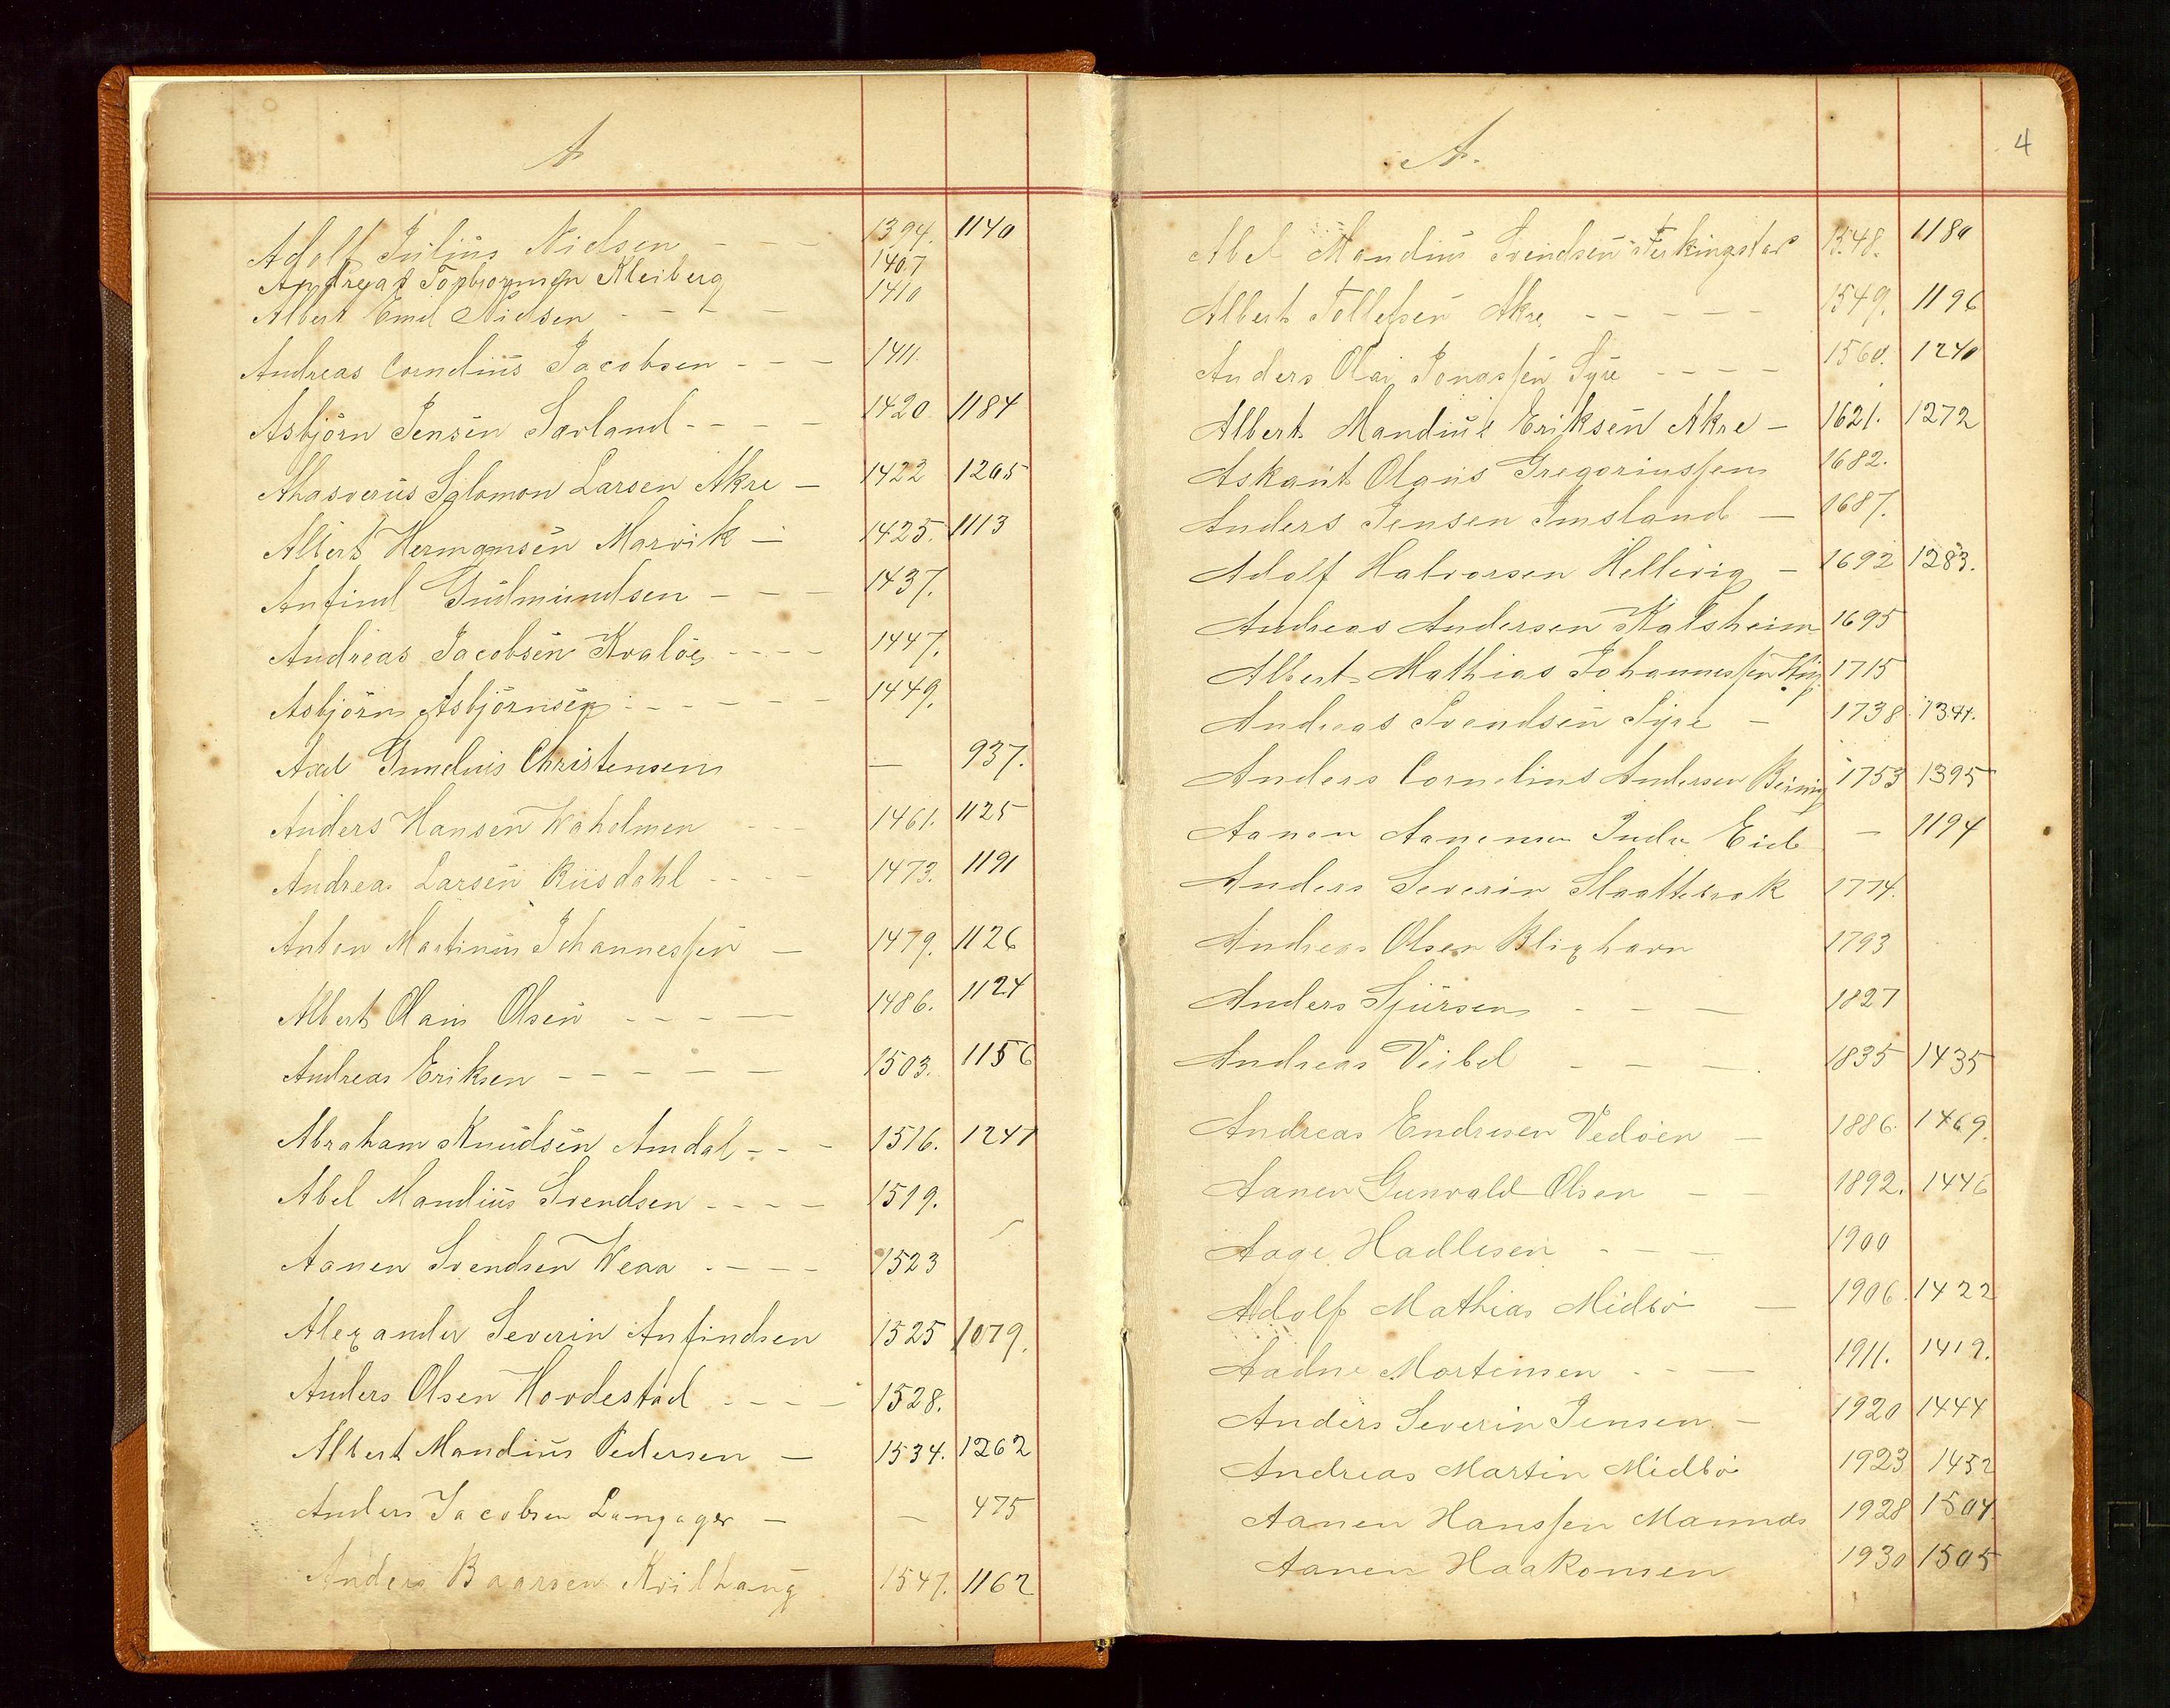 A
Adolf Julius Nielsen - - - 1394. 1140
Andreas Torbjornsen Kleiberg 1407
Albert Emil Nielsen - - - - 1410
Andreas Cornelius Jacobsen - - - 1411.
Asbjörn Jensen Sarland - - - - 1420. 1184
Ahasverus Salomon Larsen Akre - 1422 1205
Albert Hermansen Marvik - 1425. 1113
Anfind Gudmundsen - - - 1437.
Andreas Jacobsen Kvaløe - - - - 1447.
Asbjörn Asbjörnsen - - - - - 1449.
Axel Gunelius Christensen — 937.
Anders Hansen Waholmen - - - 1461. 1125
Andreas Larsen Riisdahl - - - - 1473. 1191
Anton Martinus Johannessen - 1479. 1126
Albert Olais Olsen - - - — 1486. 1124
Andreas Eriksen - - - - - 1503. 1156
Abraham Knudsen Amdal - - - 1516. 1241
Abel Mandius Svendsen - - - - 1519.
Aanen Svendsen Weaa - - - - 1523
Alexander Severin Anfindsen 1525 1079.
Anders Olsen Hovdestad - - - - 1528.
Albert Mandius Pedersen - 1534. 1262
Anders Jacobsen Langager - — 475
Anders Baarsen Kvilhaug 1547. 1162
A.
4
Abel Mandius Svendsen Ferkingstad 1548. 1180
Albert Tollefsen Akre - - - - - 1549. 1196
Anders Olai Jonassen Syre - - - - 1560. 1240
Albert Mandius Eriksen Akre - 1621. 1272
Askant Olaus Gregoriussen 1682.
Anders Jensen Imsland - 1687.
Adolf Halvorsen Hellevig - 1692 1283.
Andreas Andersen Kalsheim 1695
Albert Mathias Johannessen 1715
Andreas Svendsen Syre - 1738. 1341.
Anders Cornelius Andersen 1753 1395
Aanen Aanensen Indre Eide — 1194
Anders Severin Slaattebrak 1774.
Andreas Olsen Blixhavn 1793
Anders Sjursen - - - 1827
Andreas Veibel - - - 1835 1435
Andreas Endresen Vedøen - 1886. 1469.
Aanen Gunvald Olsen - - 1892. 1446
Aage Hadlesen - - - 1900
Adolf Mathias Midbö - 1906. 1422
Aadne Mortensen - - — 1911. 1419.
Anders Severin Jensen - 1920 1444
Andreas Martin Midbö 1923 1452
Aanen Hanssen Mannes 1928 1504.
Aanen Haakonsen 1930 1505